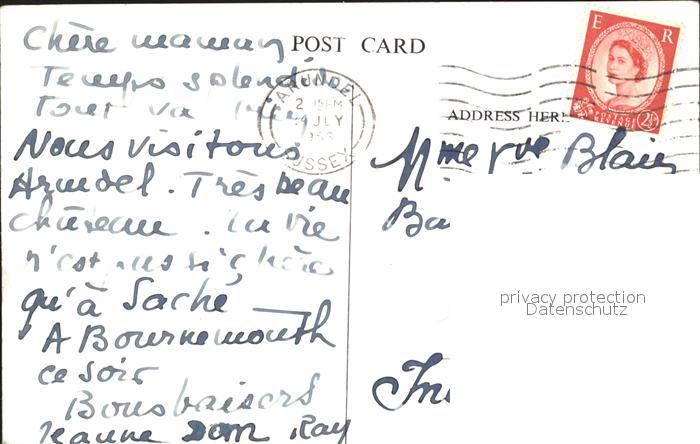 Chère maman
POST CARD
E R
Temps splendide
Tout va bien
ARUNDEL
2 15 PM
JLY
SUSSEX
POSTAGE REVENUE
2½
ADDRESS HERE
Nous visitons
Arundel. Très beau
château. La vie
n'est pas si chère
qu'à Saché
A Bournemouth
ce soir
Bons baisers
Jeanne Dom Ray
Mme Vve Blain
privacy protection
Datenschutz